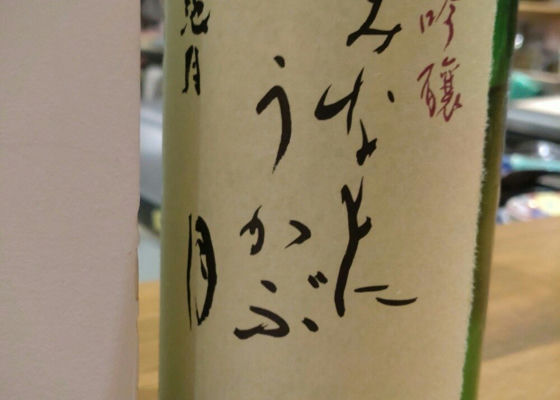 吟醸
みなとに
うかぶ
月
池月